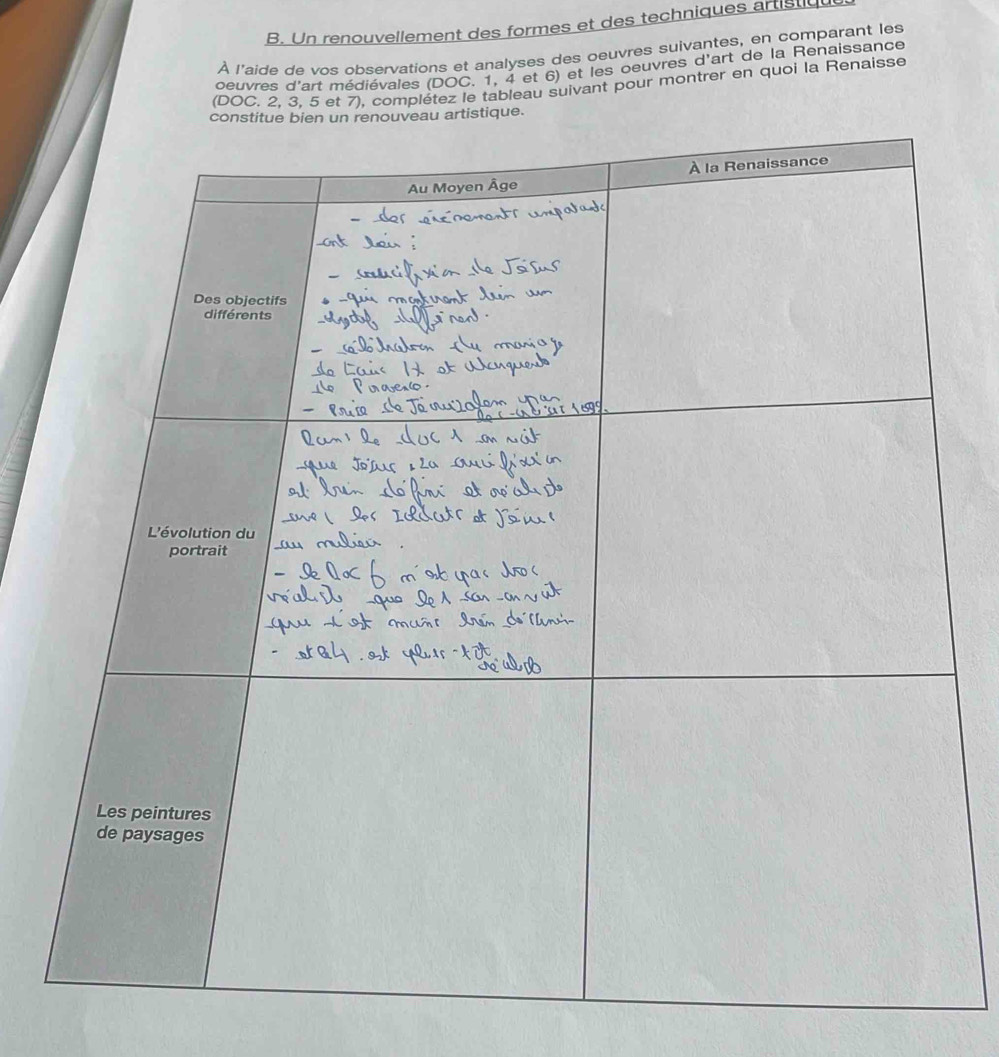 B. Un renouvellement des formes et des techniques artistiques
À l'aide de vos observations et analyses des oeuvres suivantes, en comparant les
oeuvres d'art médiévales (DOC. 1, 4 et 6) et les oeuvres d'art de la Renaissance
(DOC. 2, 3, 5 et 7), complétez le tableau suivant pour montrer en quoi la Renaisse
constitue bien un renouveau artistique.
Au Moyen Âge
À la Renaissance
Des objectifs
différents
- des événements
ont lieu :
- crucifixion de Jésus
- qui montrent bien un
différent.
- célébration du mariage
de Louis IX et Marguerite
de Provence.
- Prise de Jérusalem par
les 1099.
L'évolution du
portrait
Dans le doc 1 on voit
que Jésus, la crucifixion
et bien défini et réaliste
avec les soldats et Jésus
au milieu.
- le Doc 6 n'est pas
réaliste que le 1 car on voit
que c'est moins bien
- et est plus-tôt
réaliste
Les peintures
de paysages